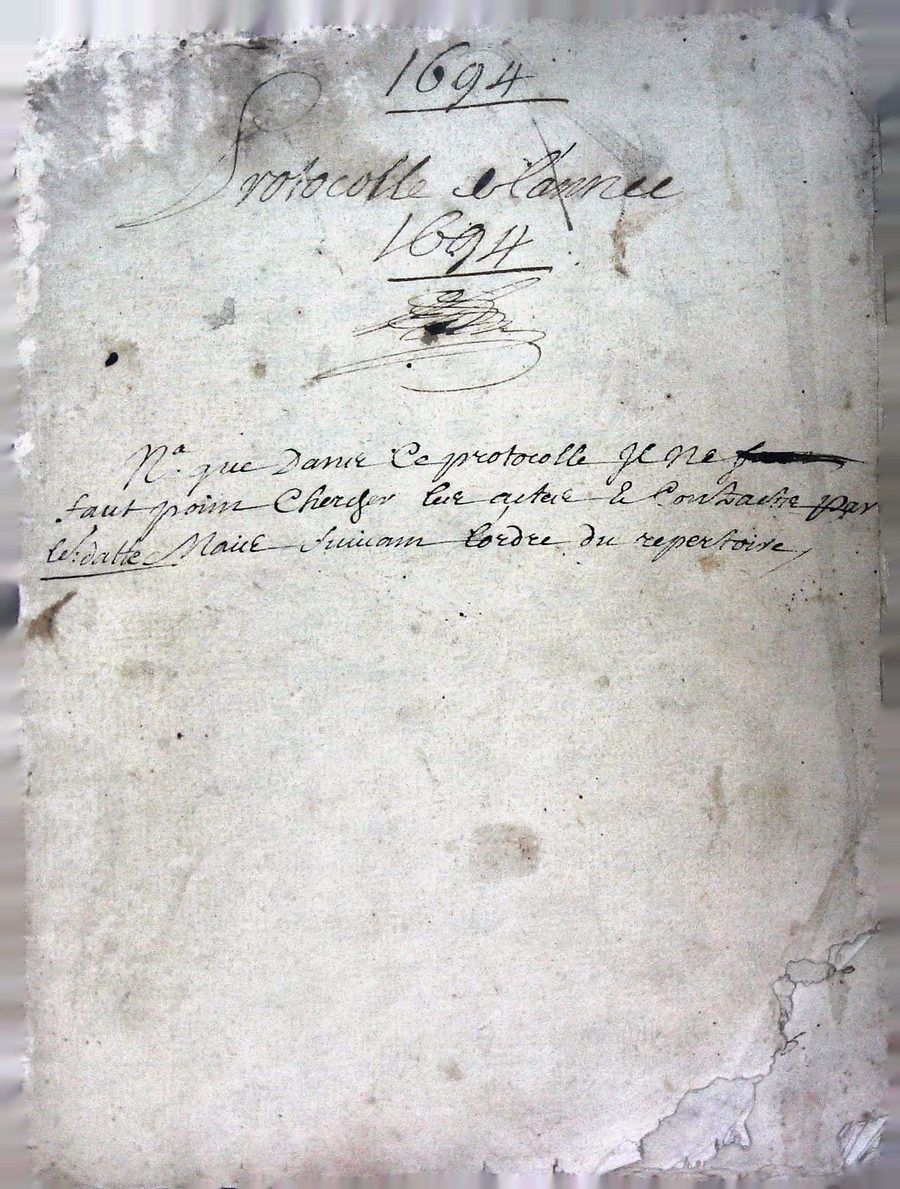 1694
Protocolle de l'année
1694
Na. que Dans Ce protocolle Il Ne
faut point Chercher les actes & Contracts par
les datte Mais suivant lordre du repertoire,